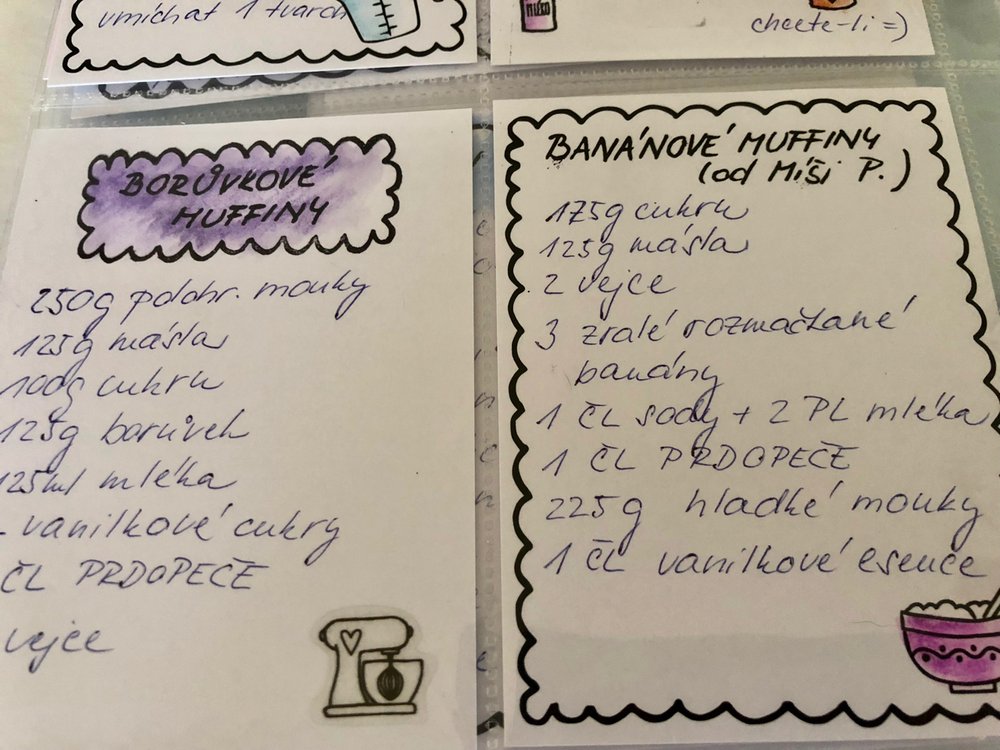 vmíchat 1 tvaroh
mléko
chcete-li =)
BORŮVKOVÉ
MUFFINY
250g polohr. mouky
125g másla
100g cukru
125g borůvek
125ml mléka
vanilkové cukry
ČL PRDOPEČE
vejce
BANÁNOVÉ MUFFINY
(od Míši P.)
175g cukru
125g másla
2 vejce
3 zralé rozmačkané
banány
1 ČL sody + 2 PL mléka
1 ČL PRDOPEČE
225g hladké mouky
1 ČL vanilkové esence